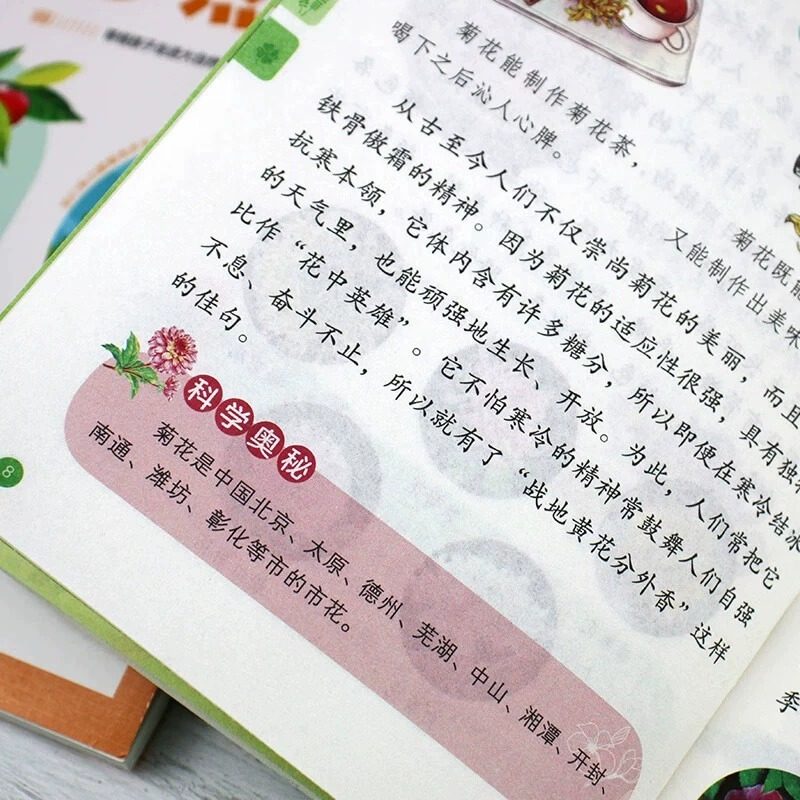 菊花能制作菊花茶，
喝下之后沁人心脾。
菊花既
又能制作出美味
从古至今人们不仅崇尚菊花的美丽，而且
铁骨傲霜的精神。因为菊花的适应性很强，具有独
抗寒本领，它体内含有许多糖分，所以即便在寒冷结冰
的天气里，也能顽强地生长、开放。为此，人们常把它
比作“花中英雄”。它不怕寒冷的精神常鼓舞人们自强
不息、奋斗不止，所以就有了“战地黄花分外香”这样
的佳句。
科学奥秘
菊花是中国北京、太原、德州、芜湖、中山、湘潭、开封、
南通、潍坊、彰化等市的市花。
8
季